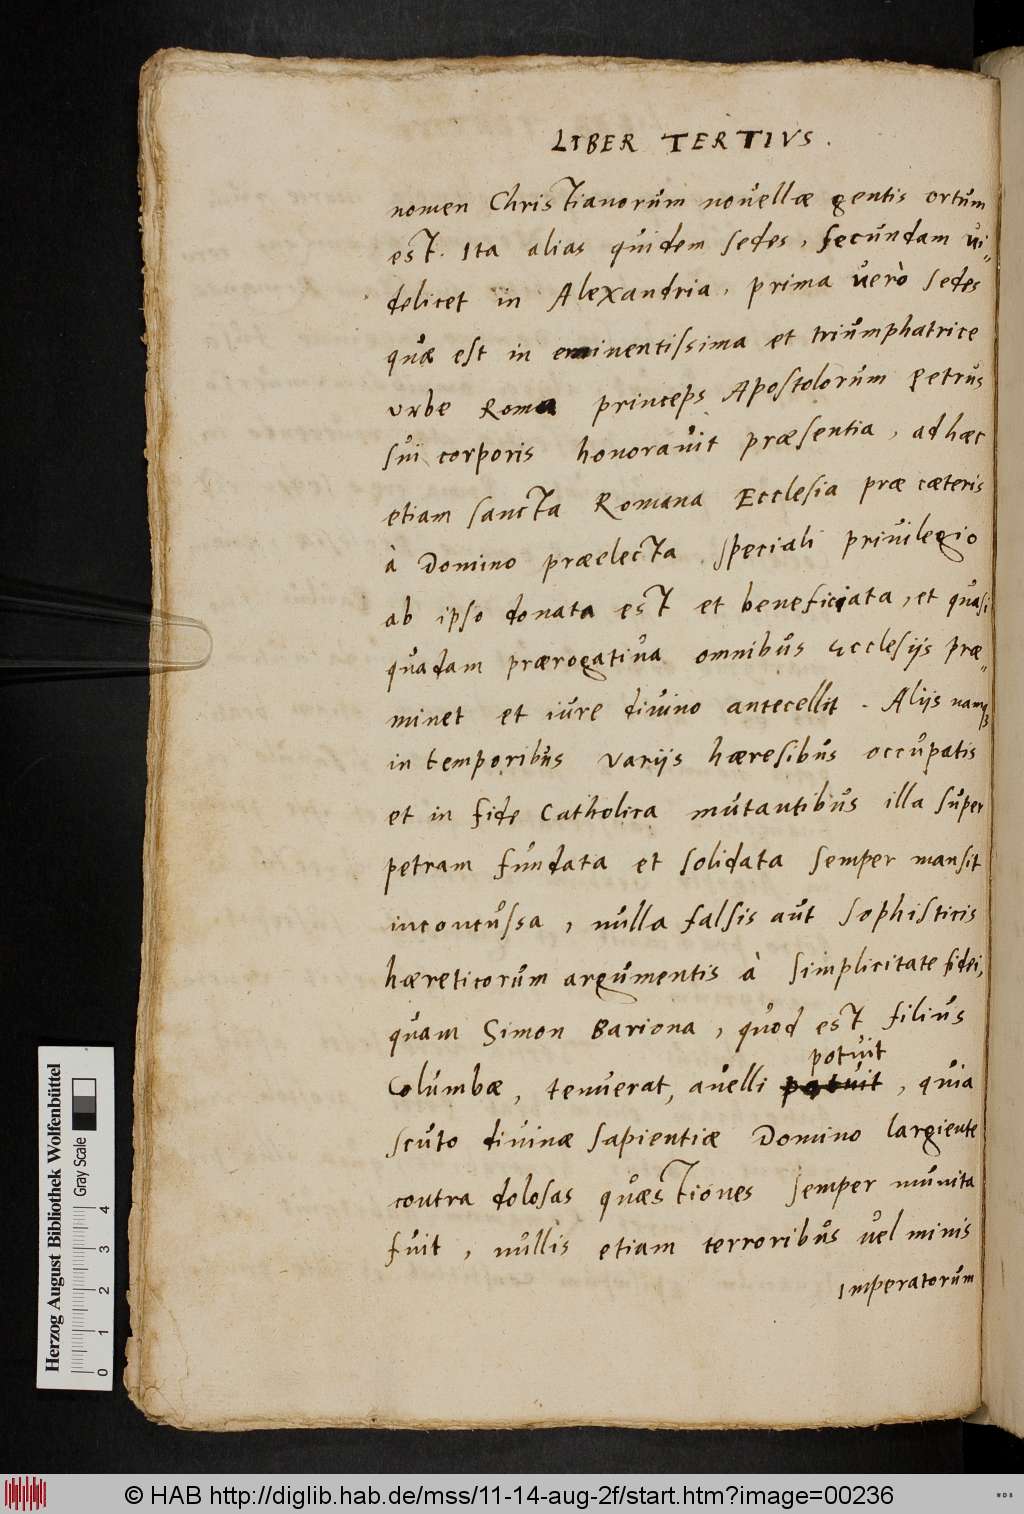 LIBER TERTIVS.
nomen Christianorum nouellæ gentis ortum
est. Ita alias quidem sedes, secundam ui-
delicet in Alexandria, prima uerò sedes
quæ est in eminentissima et triumphatrice
vrbe Roma princeps Apostolorum Petrus
sui corporis honorauit præsentia, ad hæc
etiam sancta Romana Ecclesia præ cæteris
à Domino præelecta speciali priuilegio
ab ipso donata est et beneficiata, et quasi
quadam prærogatiua omnibus Ecclesijs præ-
minet et iure diuino antecellit. Alijs namq3
in temporibus varijs hæresibus occupatis
et in fide Catholica mutantibus illa super
petram fundata et solidata semper mansit
inconcussa, nulla falsis aut sophisticis
hæreticorum argumentis à simplicitate fidei,
quam Simon Bariona, quod est filius
potuit
Columbæ, tenuerat, auelli potuit, quia
scuto diuinæ sapientiæ Domino largiente
contra dolosas quæstiones semper munita
fuit, nullis etiam terroribus uel minis
Imperatorum
Herzog August Bibliothek Wolfenbüttel
Gray Scale
0 1 2 3 4
© HAB http://diglib.hab.de/mss/11-14-aug-2f/start.htm?image=00236